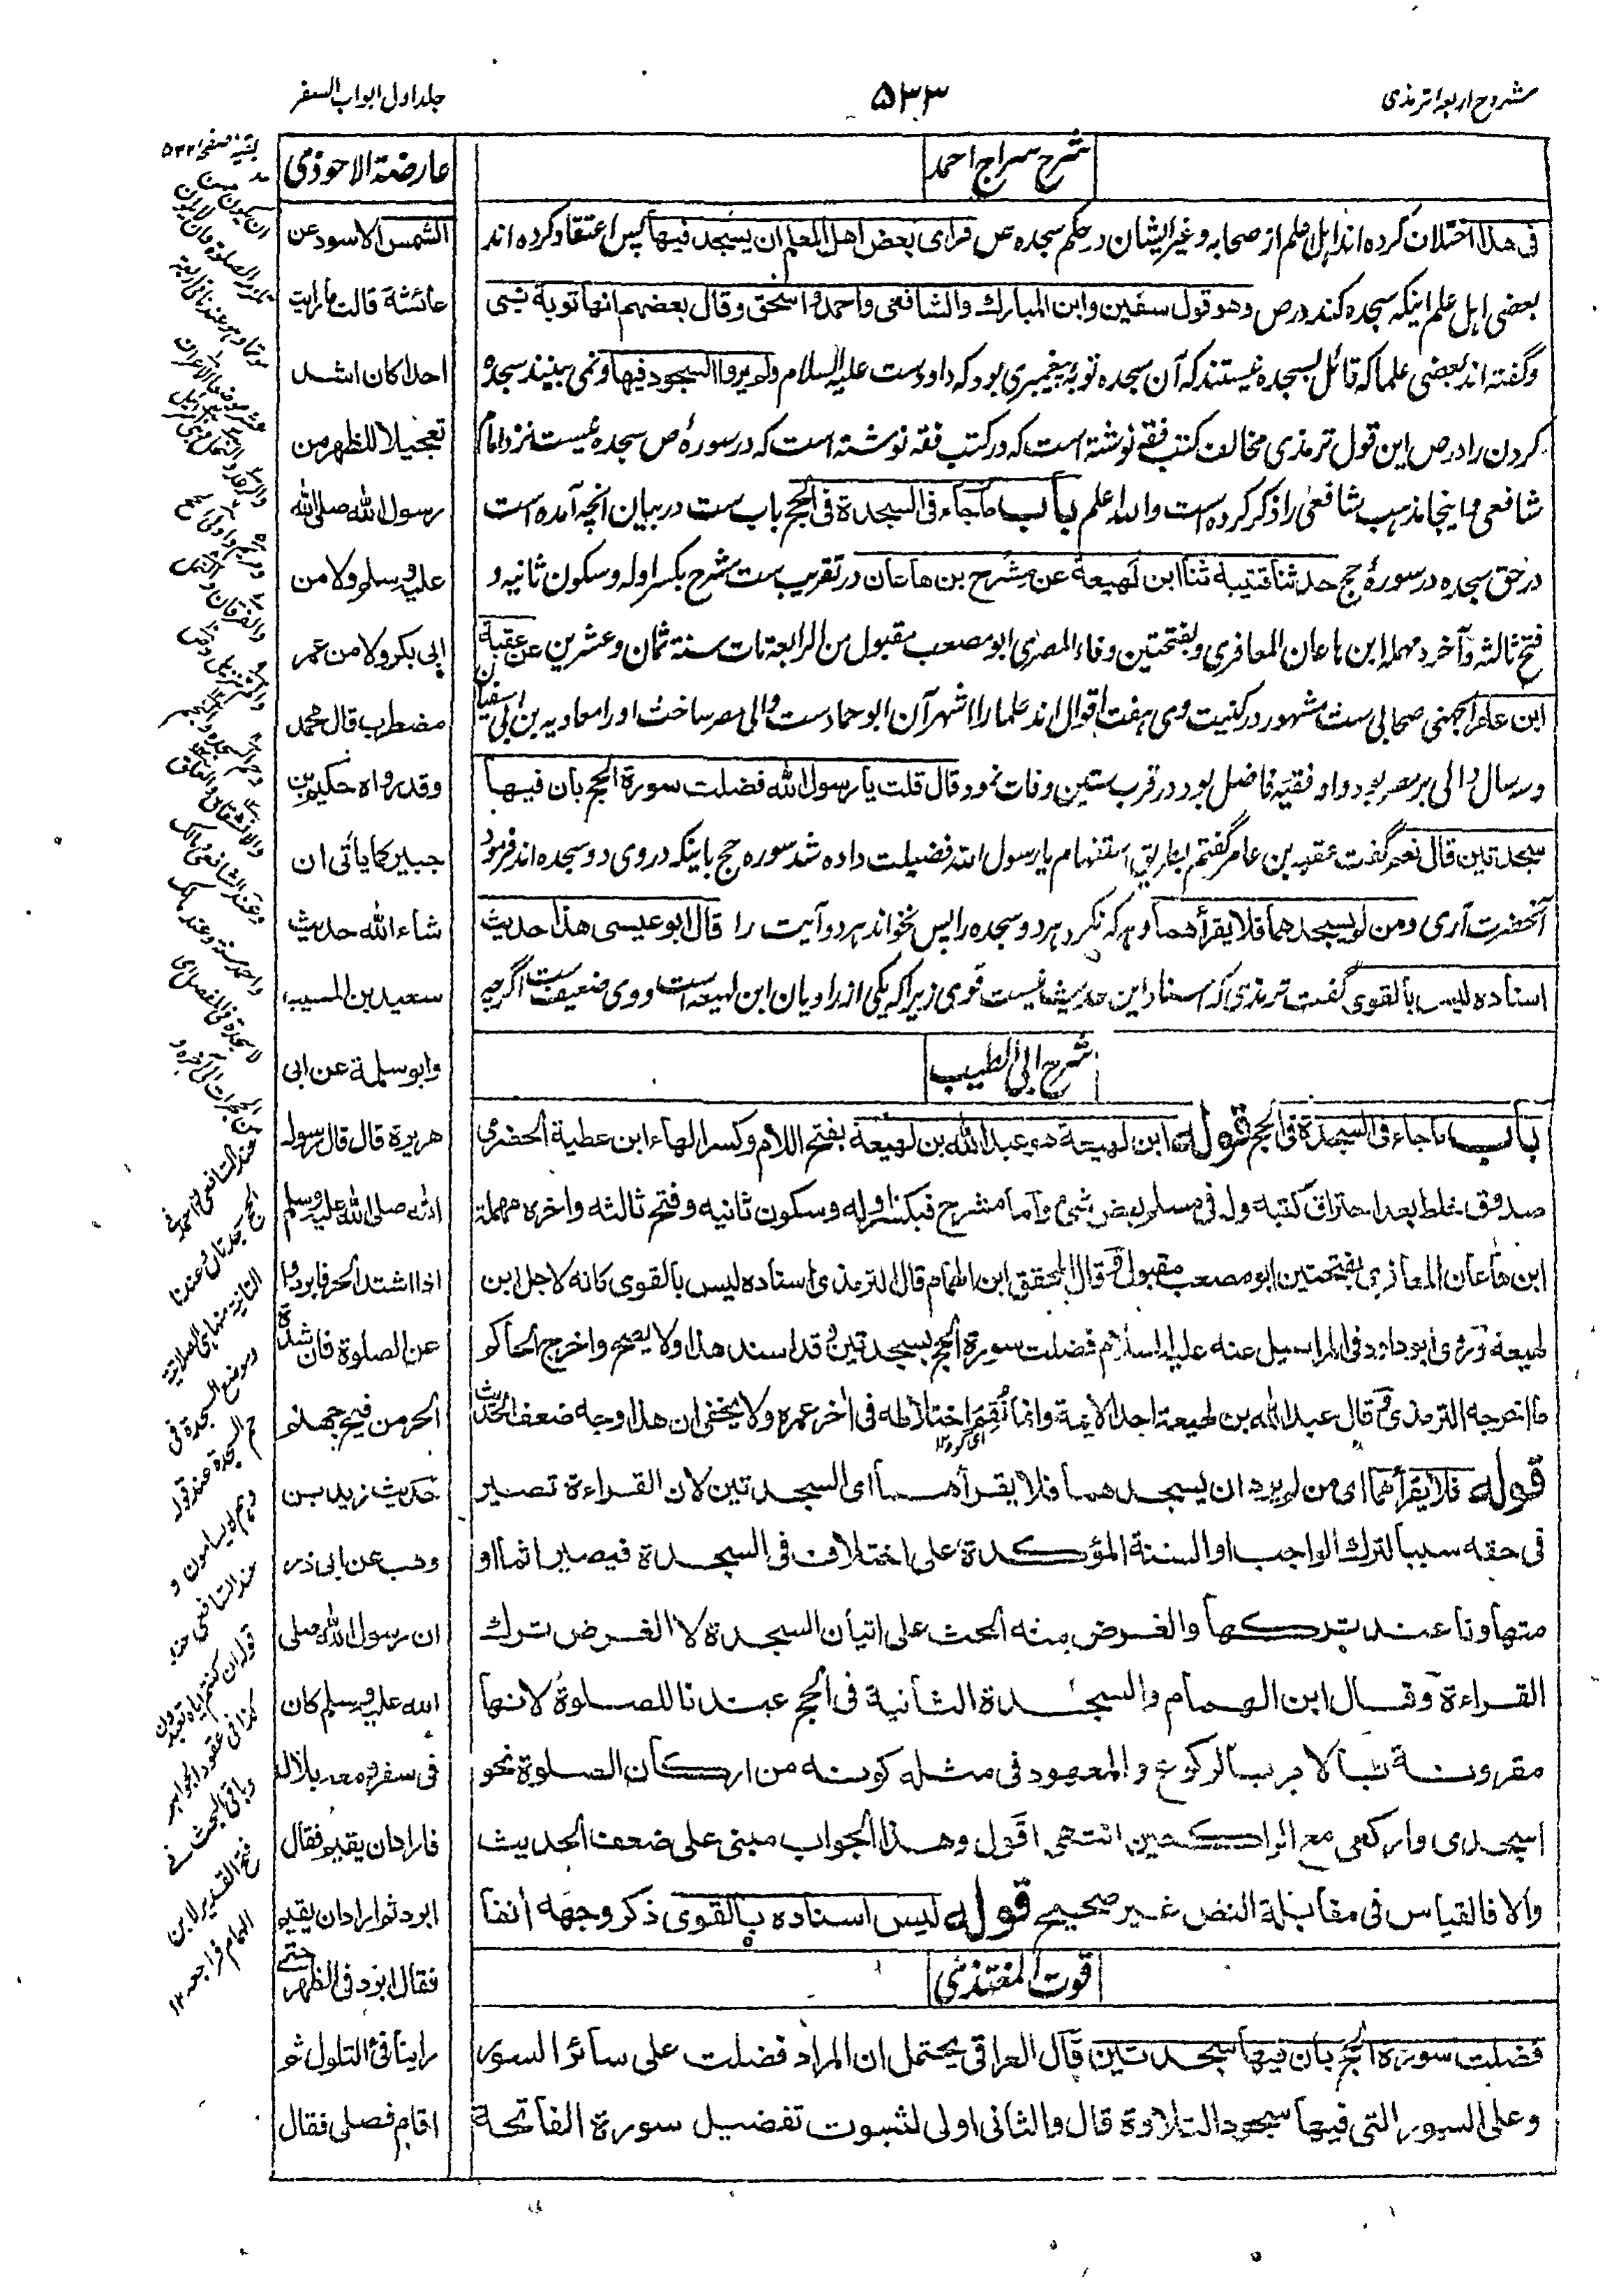 شروح اربعہ ترمذی
۵۳۳
جلد اول ابواب السفر
شرح سراج احمد
فی هذا اختلاف کرده اند اہل علم از صحابہ و غیر ایشان در حکم سجده ص فرای بعض اهل العلم ان یسجد فیها پس اعتقاد کرده اند
بعضی اہل علم اینکہ سجده کنند در ص وهو قول سفین وابن المبارك والشافعی واحمد واسحق وقال بعضهم انها توبة نبی
و گفتہ اند بعضی علما کہ قائل بسجده نیستند کہ آن سجده توبۂ پیغمبری بود کہ داودست علیہ السلام ولم یروا السجود فیها و نمی بینند سجده
کردن را در ص این قول ترمذی مخالف کتب فقہ نوشتہ است کہ در کتب فقہ نوشتہ است کہ در سورۂ ص سجده نیست نزد امام
شافعی و اینجا مذہب شافعی را ذکر کرده است واللہ اعلم باب ما جاء فی السجدة فی الحج باب ست در بیان انچہ آمده است
در حق سجده در سورۂ حج حدثنا قتیبة ثنا ابن لهیعة عن مشرح بن هاعان در تقریب ست مشرح بکسر اولہ و سکون ثانیہ و
فتح ثالثہ و آخره مہملہ ابن ہاعان المعافری و بفتحتین وفاء المصری ابو مصعب مقبول من الرابعة مات سنة ثمان وعشرین عن عقبة
ابن عامر الجهنی صحابی ست مشہور در کنیت وی ہفت اقوال اند علما را اشہر آن ابو حماد ست والی مصر ساخت او را معاویہ بن ابی سفیان
و سہ سال والی بر مصر بود و او فقیہ فاضل بود در قرب ستین وفات نمود قال قلت یا رسول الله فضلت سورة الحج بان فیها
سجدتین قال نعم گفت عقبہ بن عامر گفتم بطریق استفہام یا رسول اللہ فضیلت داده شد سوره حج باینکہ در وی دو سجده اند فرمود
آنحضرت آری ومن لم یسجدهما فلا یقرأهما و ہر کہ نکرد ہر دو سجده را پس نخواند ہر دو آیت را قال ابو عیسی هذا حدیث
اسناده لیس بالقوی گفت ترمذی کہ اسناد این حدیث نیست قوی زیرا کہ یکی از راویان ابن لہیعہ است و وی ضعیف ست اگرچہ
شرح ابی الطیب
باب ما جاء فی السجدة فی الحج قوله ابن لهیعة هو عبد الله بن لهیعة بفتح اللام وکسر الهاء ابن عطیة الحضرمی
صدوق خلط بعد احتراق کتبه وله فی مسلم بعض شیء واما مشرح فبکسر اوله وسکون ثانیه وفتح ثالثه واخره مهملة
ابن هاعان المعافری بفتحتین ابو مصعب مقبول قال المحقق ابن الهمام قال الترمذی اسناده لیس بالقوی کانه لاجل ابن
لهیعة وروی ابو داود فی المراسیل عنه علیه السلام فضلت سورة الحج بسجدتین وقد اسند هذا ولا یصح واخرج الحاکم
ما اخرجه الترمذی وقال عبد الله بن لهیعة احد الائمة وانما نقم اختلاطه فی اخر عمره ولا یخفی ان هذا وجه ضعف الحدیث
قوله فلا یقرأهما ای من لم یرد ان یسجدهما فلا یقرأهما ای السجدتین لان القراءة تصیر
فی حقه سببا لترك الواجب او السنة المؤکدة علی اختلاف فی السجدة فیصیر اثما او
متهاونا عند ترکها والغرض منه الحث علی اتیان السجدة لا الغرض ترك
القراءة وقال ابن الهمام والسجدة الثانیة فی الحج عندنا للصلوة لانها
مقرونة بالامر بالرکوع والمعهود فی مثله کونه من ارکان الصلوة نحو
اسجدی وارکعی مع الراکعین انتهی اقول وهذا الجواب مبنی علی ضعف الحدیث
والا فالقیاس فی مقابلة النص غیر صحیح قوله لیس اسناده بالقوی ذکر وجهه انفا
قوت المغتذی
فضلت سورة الحج بان فیها سجدتین قال العراقی یحتمل ان المراد فضلت علی سائر السور
وعلی السور التی فیها سجود التلاوة قال والثانی اولی لثبوت تفضیل سورة الفاتحة
عارضة الاحوذی
الشمس الاسود عن
عائشة قالت ما رایت
احدا کان اشد
تعجیلا للظهر من
رسول الله صلی الله
علیه وسلم ولا من
ابی بکر ولا من عمر
مضطرب قال محمد
وقد رواه حکیم بن
جبیر کما یاتی ان
شاء الله حدیث
سعید بن المسیب
وابو سلمة عن ابی
هریرة قال قال رسول
الله صلی الله علیه وسلم
اذا اشتد الحر فابردوا
عن الصلوة فان شدة
الحر من فیح جهنم
حدیث زید بن
وهب عن ابی ذر
ان رسول الله صلی
الله علیه وسلم کان
فی سفر ومعه بلال
فاراد ان یقیم فقال
ابرد ثم اراد ان یقیم
فقال ابرد فی الظهر حتی
راینا فیء التلول ثم
اقام فصلی فقال
بقیہ صفحہ ۵۳۲
عند الشافعی واحمد فی
الحج سجدتان وعندنا
الثانیة منهما هی الصلاتیة
وموضع السجدة فی
حم السجدة عند قوله
وهم لا یسامون و
عند الشافعی عند
قوله ان کنتم ایاه تعبدون
کذا فی عقود الجواهر
وباقی البحث فی
فتح القدیر لابن
الهمام فراجعه ۱۲